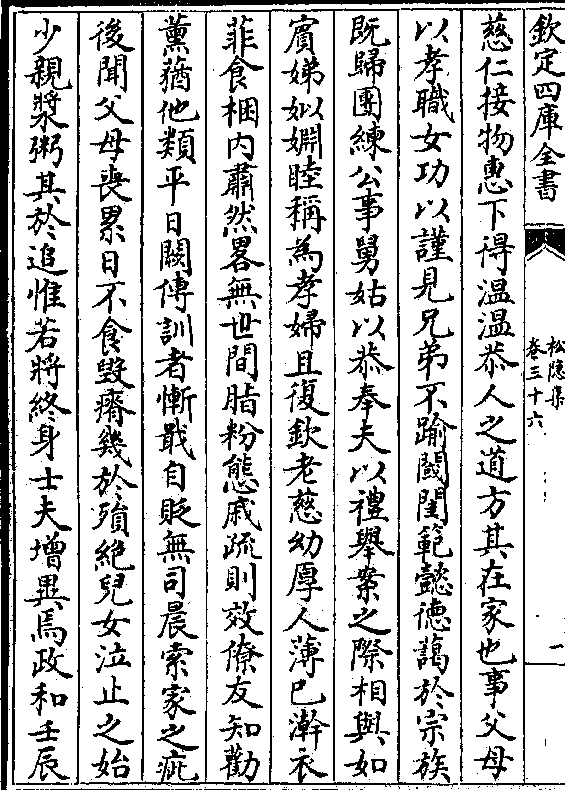 欽定四庫全書
松隱集
卷三十六
一
慈仁接物惠下得温温恭人之道方其在家也事父母
以孝職女功以謹見兄弟不踰閾閨範懿徳藹於宗族
既歸團練公事舅姑以恭奉夫以禮舉案之際相與如
賓娣姒婣睦稱為孝婦且復欽老慈幼厚人薄已澣衣
菲食梱内肅然畧無世間脂粉態戚疏則效僚友知勸
薰蕕他類平日闕傳訓者慚戢自貶無司晨索家之疵
後聞父母喪累日不食毁瘠幾於殞絶兒女泣止之始
少親漿粥其於追惟若將終身士夫增異焉政和壬辰